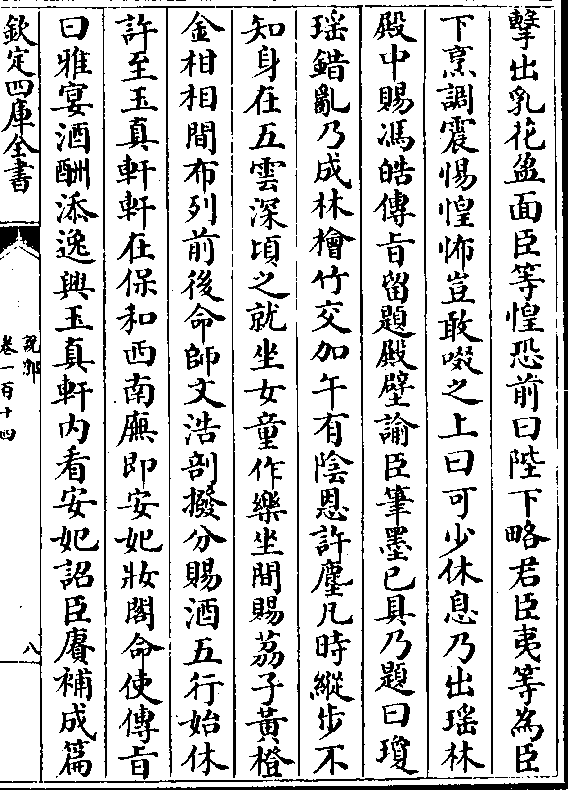 擊出乳花盈面臣等惶恐前曰陛下略君臣夷等為臣
下烹調震惕惶怖豈敢啜之上曰可少休息乃出瑶林
殿中賜馮皓傳㫖留題殿壁諭臣筆墨已具乃題曰瓊
瑶錯亂乃成林檜竹交加午有陰恩許塵凡時縱步不
知身在五雲深頃之就坐女童作樂坐間賜荔子黃橙
金柑相間布列前後命師文浩剖撥分賜酒五行始休
許至玉真軒軒在保和西南廡即安妃妝閣命使傳㫖
曰雅宴酒酣添逸興玉真軒内看安妃詔臣賡補成篇
欽定四庫全書
說郛
卷一百十四
八